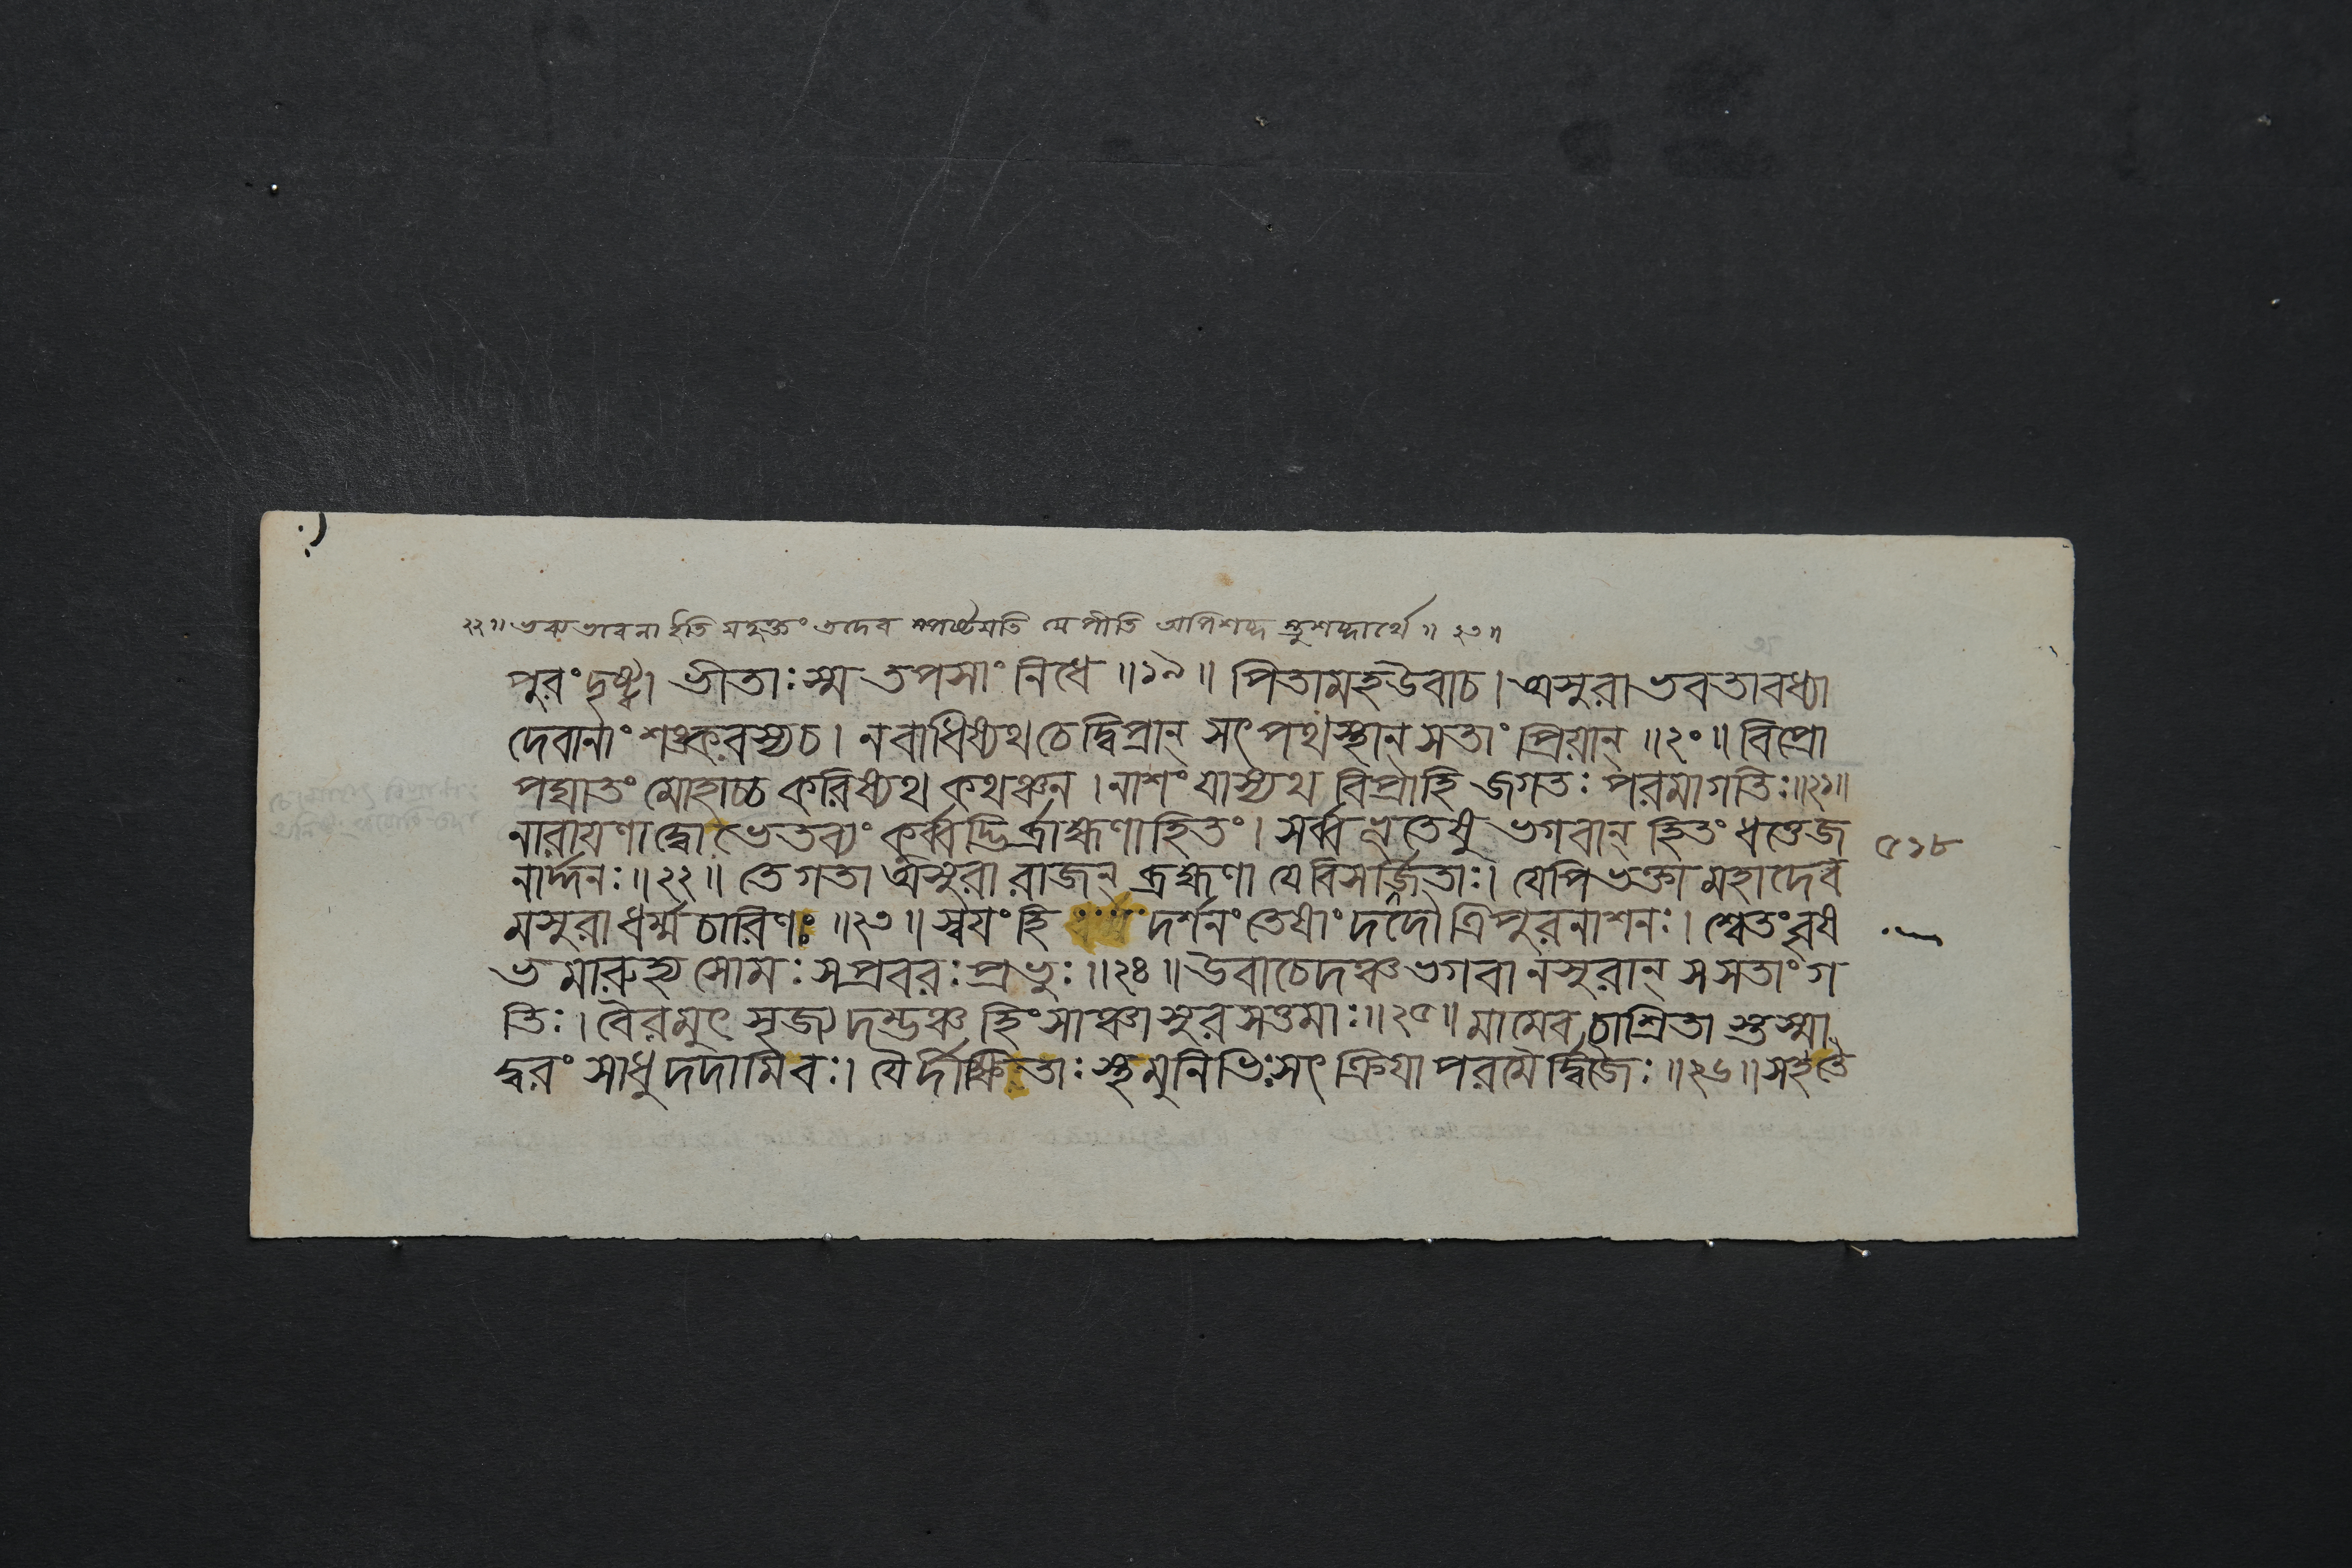 ২২॥ ভক্তাভবেনা ইতি যদুক্তং তদেব স্পষ্টয়তি যেপীতি অপিশব্দ স্তুশব্দার্থে॥ ২৩॥
পুরং দৃষ্ট্বা ভীতাঃ স্ম তপসাং নিধে॥১৯॥ পিতামহউবাচ। অসুরা ভবতাবধ্যা
দেবানাং শঙ্করস্যচ। নবাধিষ্যথ চেদ্বিপ্রান্ সৎপথস্থান্ সতাং প্রিয়ান্॥২০॥ বিপ্রো
পঘাতং মোহাচ্চ করিষ্যথ কথঞ্চন। নাশং যাস্যথ বিপ্রাহি জগতঃ পরমাগতিঃ॥২১॥
নারায়ণাদ্ধো ভেতব্যং কুর্ব্বদ্ভির্ব্রাহ্মণাহিতং। সর্ব্বভূতেষু ভগবান্ হিতং ধত্তেজ
নার্দ্দনঃ॥২২॥ তে গতা অসুরা রাজন্ ব্রহ্মণা যে বিসর্জ্জিতাঃ। যেপি ভক্তা মহাদেব
মসুরা ধর্ম্মচারিণঃ॥২৩॥ স্বয়ং হি দর্শনং তেষাং দদৌ ত্রিপুরনাশনঃ। শ্বেতং বৃষ
ভমারুহ্য সোমঃ সপ্রবরঃ প্রভুঃ॥২৪॥ উবাচেদঞ্চ ভগবানসুরান্ স সতাং গ
তিঃ। বৈরমুৎসৃজ্য দম্ভঞ্চ হিংসাঞ্চাসুরসত্তমাঃ॥২৫॥ মামেব চাশ্রিতা স্তস্মা
দ্বরং সাধু দদামি বঃ। যৈর্দীক্ষিতাঃ স্থ মুনিভিঃ সৎক্রিয়া পরমৈর্দ্বিজৈঃ॥২৬॥ সহতৈ
৫১৮